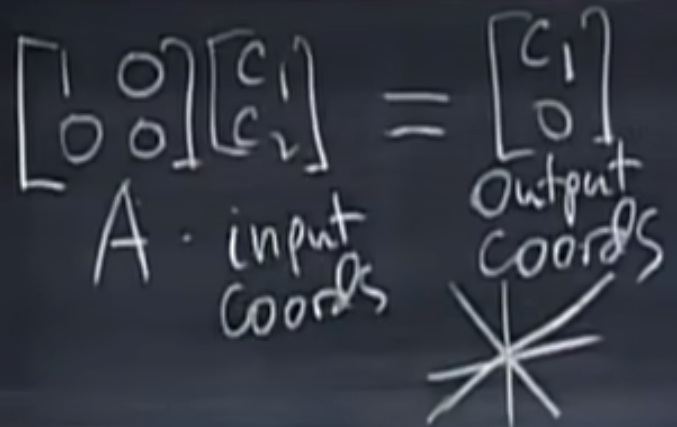 [1 0
0 0] [c1
c2] = [c1
0]
A · input coords
output coords